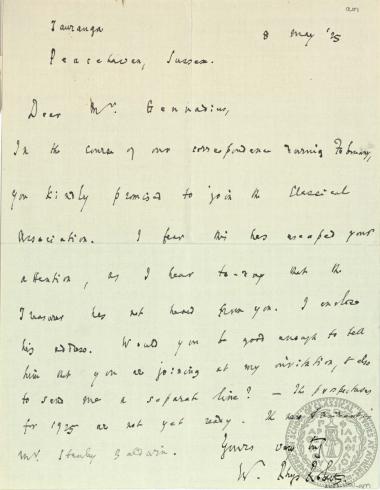 Tauranga
8 May '25
Peacehaven, Sussex.
Dear Mr. Gennadius,
In the course of our correspondence during February,
you kindly promised to join the Classical
Association. I fear this has escaped your
attention, as I hear to-day that the
Treasurer has not heard from you. I enclose
his address. Would you be good enough to tell
him that you are joining at my invitation, & also
to send me a separate line? — The prospectuses
for 1925 are not yet ready. The new
Mr. Stanley Baldwin.
Yours very truly
W. Rhys Roberts.